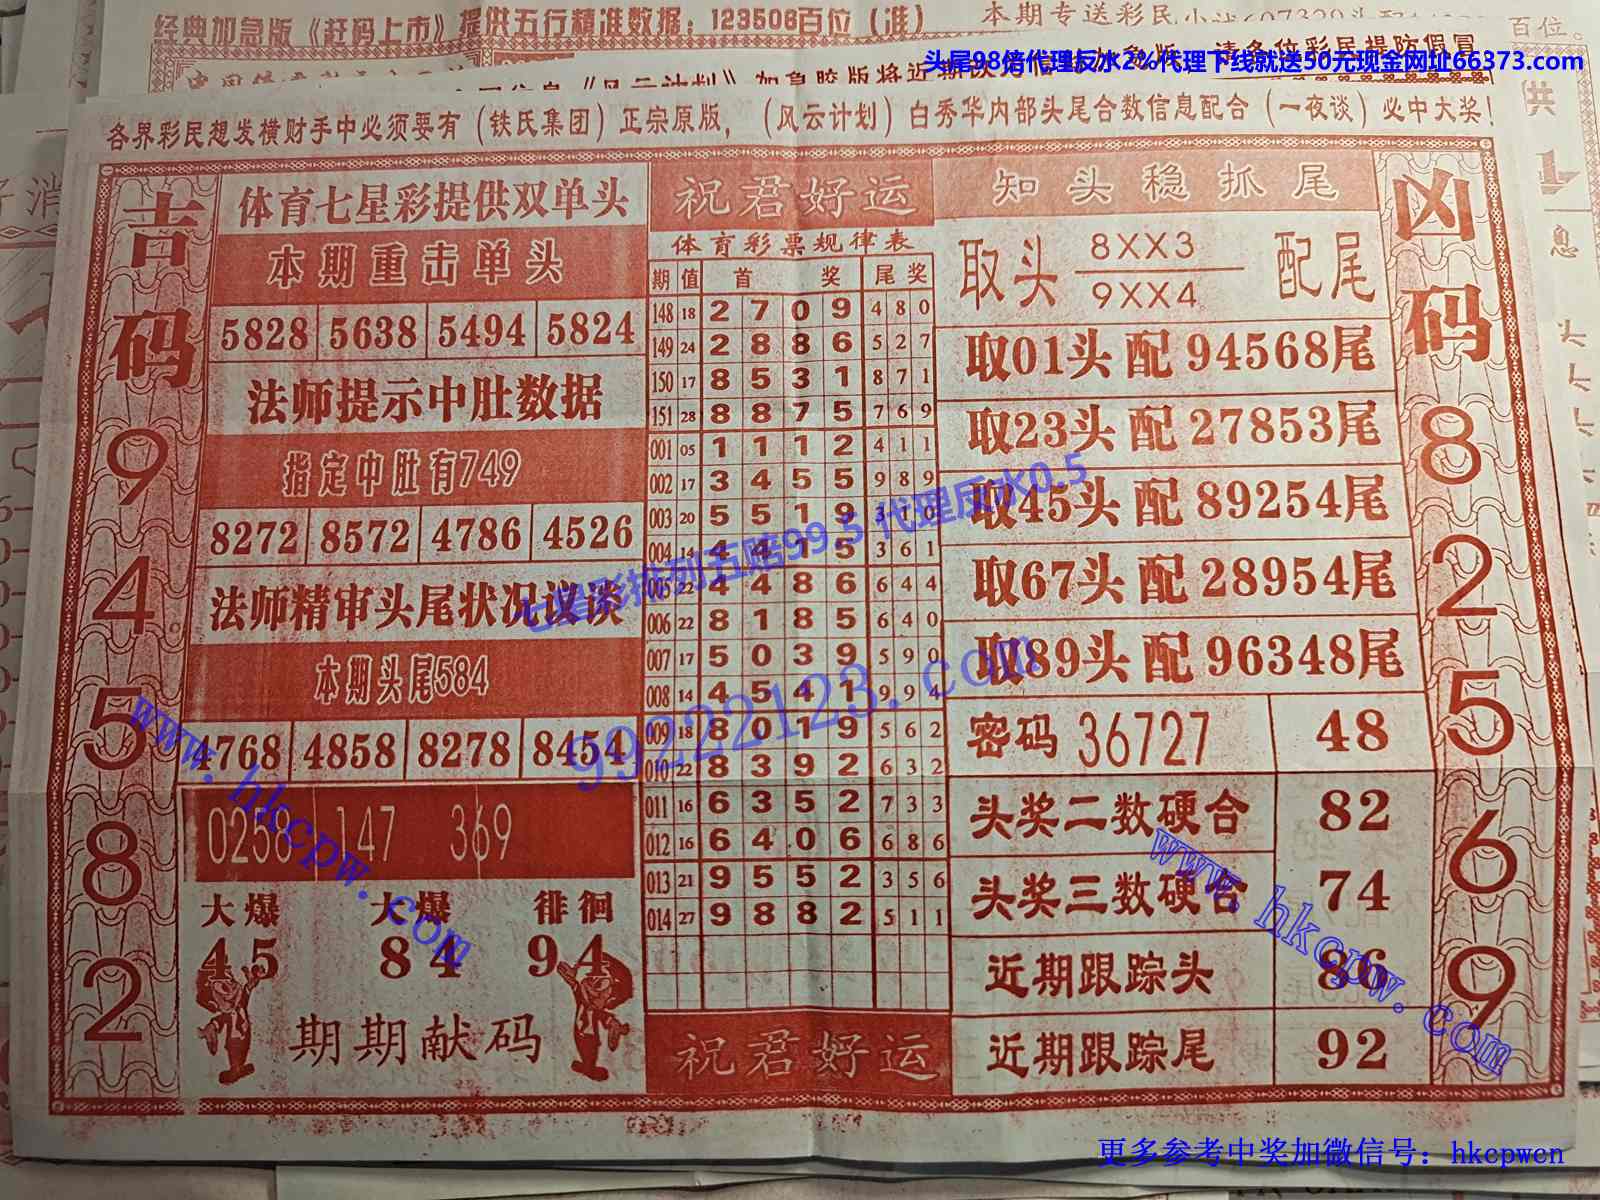 经典加急版《赶码上市》提供五行精准数据：123506百位（准）
本期专送彩民
百位。
头尾98倍代理反水2%代理下线就送50元现金网址66373.com
各界彩民想发横财手中必须要有（铁氏集团）正宗原版，（风云计划）白秀华内部头尾合数信息配合（一夜谈）必中大奖！
吉码
9
4
5
8
2
体育七星彩提供双单头
本期重击单头
5828 5638 5494 5824
法师提示中肚数据
指定中肚有749
8272 8572 4786 4526
法师精审头尾状况议谈
本期头尾584
4768 4858 8278 8454
0258 147 369
大爆 大爆 徘徊
45 84 94
期期献码
祝君好运
体育彩票规律表
期 值 首 奖 尾 奖
148 18 2 7 0 9 4 8 0
149 24 2 8 8 6 5 2 7
150 17 8 5 3 1 8 7 1
151 28 8 8 7 5 7 6 9
001 05 1 1 1 2 4 1 1
002 17 3 4 5 5 9 8 9
003 20 5 5 1 9 3 1 0
004 14 4 4 1 5 3 6 1
005 22 4 4 8 6 6 4 4
006 22 8 1 8 5 6 4 0
007 17 5 0 3 9 5 9 0
008 14 4 5 4 1 9 9 4
009 18 8 0 1 9 5 6 2
010 22 8 3 9 2 6 3 2
011 16 6 3 5 2 7 3 3
012 16 6 4 0 6 6 8 6
013 21 9 5 5 2 3 5 6
014 27 9 8 8 2 5 1 1
祝君好运
知头稳抓尾
取头 8XX3 配尾
9XX4
取01头 配 94568尾
取23头 配 27853尾
取45头 配 89254尾
取67头 配 28954尾
取89头 配 96348尾
密码 36727 48
头奖二数硬合 82
头奖三数硬合 74
近期跟踪头 86
近期跟踪尾 92
凶码
8
2
5
6
9
七星彩排列五赔99.5 代理反水0.5
99222123.com
www.hkcpw.com
www.hkcpw.com
更多参考中奖加微信号：hkcpwcn